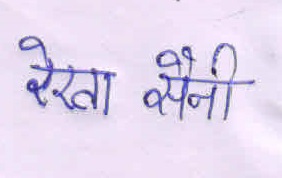 रेखा सैनी